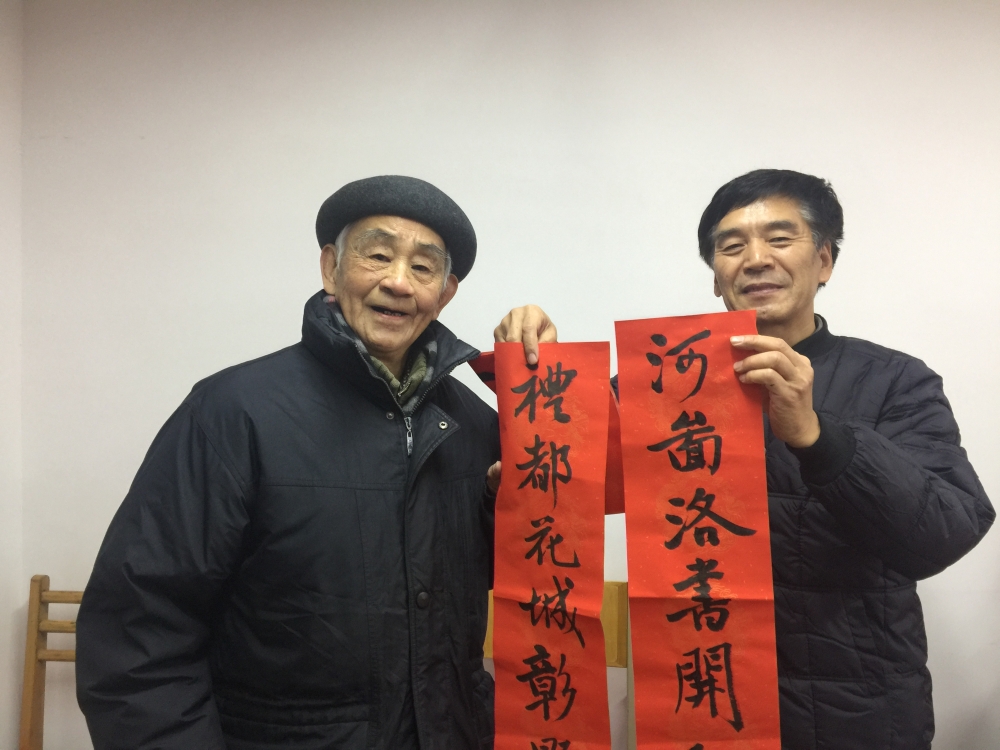 河啚洛書開
禮都花城彰